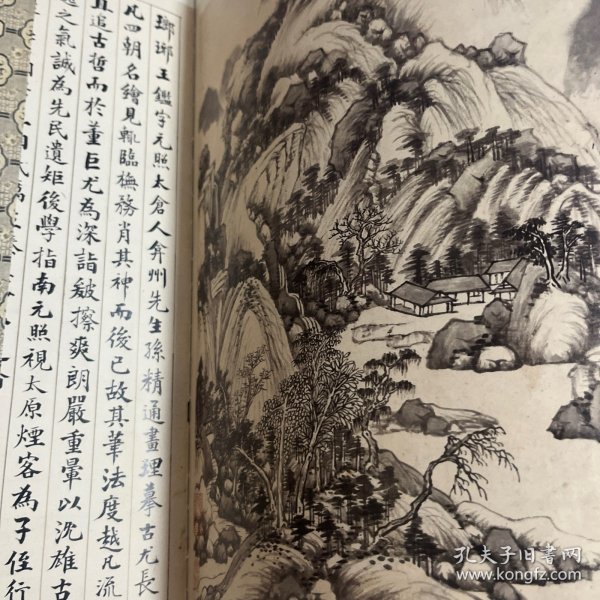 瑯琊王鑑字元照太倉人弇州先生孫精通畫理摹古尤長
凡四朝名繪見輒臨橅務肖其神而後已故其筆法度越凡流
直追古哲而於董巨尤為深詣皴擦爽朗嚴重暈以沈雄古
逸之氣誠為先民遺矩後學指南元照視太原煙客為子侄行
孔夫子旧书网
www.kongfz.com